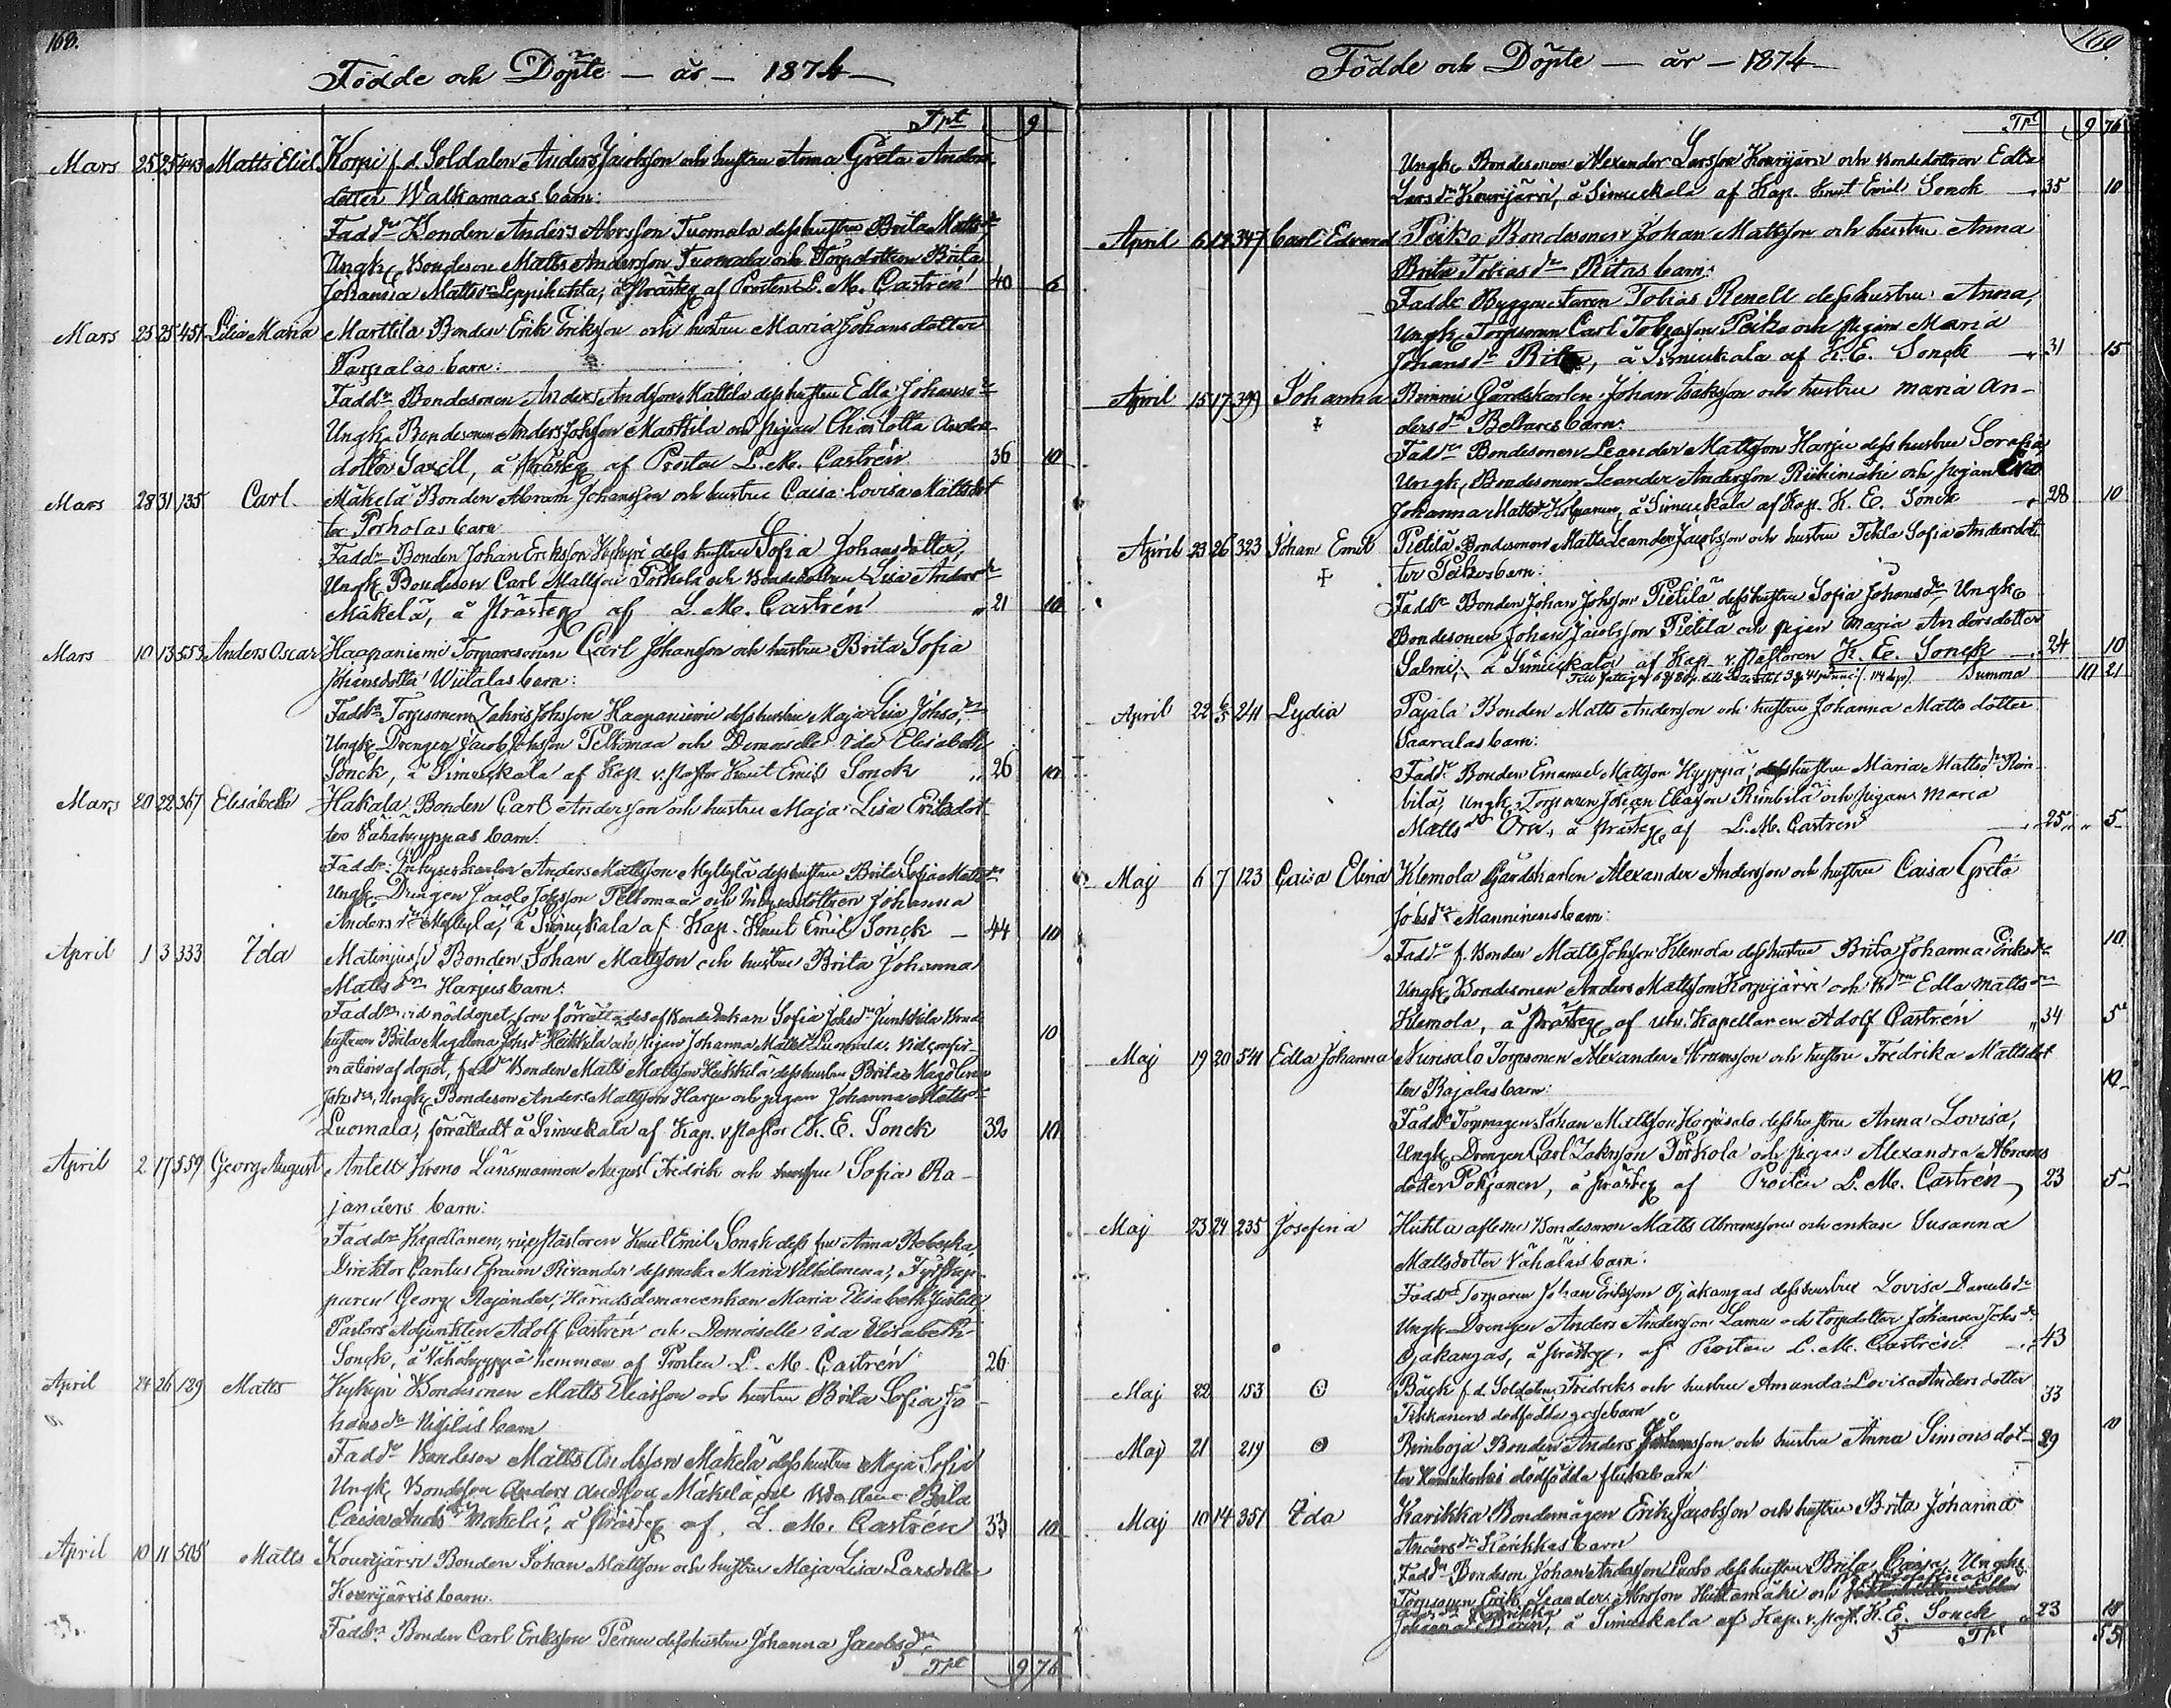 168.
Födde och Döpte — år — 1874
Tpt 9
Mars 25 25 443 Matts Eliel Korpi f.d. Soldaten Anders Jacobsson och hustru Anna Greta Anders
dotter Walkamaas barn:
Faddr Bonden Anders Abrsson Tuomala dess hustru Brita Mattsdr
Ungk. Bondeson Matts Andersson Tuomala och Torpdottren Brita
Johanna Mattsdr Leppilehta, å Prästeg. af Prosten L. M. Castrén 40 6
Mars 25 25 451 Lilia Maria Marttila Bonden Erik Eriksson och hustru Maria Johansdotter
barn:
Faddr Bondesonen Anders Andsson Mattila dess hustru Edla Johansdr
Ungk. Bondesonen Anders Johsson Marttila och pigan Charlotta Anders
dotter Gavell, å Prästeg. af Prosten L. M. Castrén 36 10
Mars 28 31 135 Carl. Mäkelä Bonden Abram Johansson och hustru Caisa Lovisa Mattsdot
ter Porkolas barn
Faddr Bonden Johan Eriksson Kykyri dess hustru Sofia Johansdotter,
Ungk. Bondeson Carl Mattsson Porkola och Bondedottren Lisa Andersdr
Mäkelä, å Prästeg af L. M. Castrén " 21 10
Mars 10 13 553 Anders Oscar Haapaniemi Torparesonen Carl Johansson och hustru Brita Sofia
Johansdotter Wiitalas barn:
Faddr Torpsonen Zakris Johsson Haapaniemi dess hustru Maja Lisa Johsdr,
Ungk. Drengen Jacob Johsson Peltomaa och Demoiselle Ida Elisabeth
Sonck, å Simukala af Kap. v. Pastor Knut Emil Sonck " 26 10
Mars 20 22 367 Elisabeth Hakala Bonden Carl Andersson och hustru Maja Lisa Eriksdot
ter Vähähyyppas barn:
Faddr Anders Mattsson Myllylä dess hustru Brita Sofia Mattsdr
Ungk. Drengen Jacob Johsson Peltomaa och dottren Johanna
Andersdr Myllylä, å Simukala af Kap. Knut Emil Sonck — 44 10
April 1 3 333 Ida Matinjussi Bonden Johan Mattsson och hustru Brita Johanna
Mattsdr Harjus barn:
Faddr vid nöddopet, som förrättades af Bondeenkan Sofia Johsdr Junkkila Bonde
hustrun Brita Magdlena Johsdr Heikkilä och pigan Johanna Mattsdr Luomala. Vid confir-
mation af dopet, faddr Bonden Matts Mattsson Heikkilä dess hustru Brita Magdlena
Johsdr, Ungk. Bondeson Anders Mattsson Harju och pigan Johanna Mattsdr
Luomala, förrättadt å Simukala af Kap. v. Pastor K. E. Sonck 32 10
10
April 2 17 559 Georg August Antell Krono Länsmannen August Fredrik och hustru Sofia Ra-
janders barn:
Faddr Kapellanen, vice Pastoren Knut Emil Sonck dess fru Anna Rebecka,
Direktor Cantus Efraim Rixander dess maka Maria Vilhelmina,
Georg Rajander, Häradsdomareenkan Maria Elisabeth
Pastors Adjunkten Adolf Castrén och Demoiselle Ida Elisabeth
Sonck, å Vähähyyppä hemman af Prosten L. M. Castrén 26
April 24 26 129 Matts Kykyri Bondesonen Matts Eliasson och hustru Brita Sofia Jo
hansdr barn
Faddr Bondeson Matts Andsson Mäkelä dess hustru Maja Sofia
Ungk. Bondeson Anders Andsson Mäkelä
Caisa Andsdr Mäkelä, å Prästeg. af L. M. Castrén 33 10
April 10 11 505 Matts Kourijärvi Bonden Johan Mattsson och hustru Maja Lisa Larsdotter
Kourijärvis barn.
Faddr Bonden Carl Eriksson Pernu dess hustru Johanna Jacobsdr,
5 Tpt 9 76
169.
Födde och Döpte — år — 1874
Tpt 9 76
Ungk. Bondesonen Alexander Larsson Kourijärvi och Bondedottren Edla
Larsdr Kourijärvi, å Simukala af Kap. Knut Emil Sonck — " 35 10
April 6 12 347 Carl Edvard Peiko Bondesonen Johan Mattsson och hustru Anna
Brita Tobiasdr Ritas barn:
Faddr Byggmästaren Tobias Renell dess hustru Anna,
Ungk. Torpsonen Carl Tobiasson Peiko och pigan Maria
Johansdr Rita, å Simukala af K. E. Sonck — " 31 15
April 15 17 399 Johanna Rimmi Gårdskarlen Johan Isaksson och hustru Maria An-
dersdr barn:
Faddr Bondesonen Leander Mattsson Harju dess hustru Serafia,
Ungk. Bondesonen Leander Andersson Riihimäki och pigan Eva
Johanna Mattsdr Kolpanen, å Simukala af Kap. K. E. Sonck — " 28 10
April 23 26 323 Johan Emil Pietilä Bondesonen Matts Leander Jacobsson och hustru Tekla Sofia Andersdot
ter Peikos barn:
Faddr Bonden Johan Johsson Pietilä dess hustru Sofia Johansdr Ungk.
Bondesonen Johan Jacobsson Pietilä och pigan Maria Andersdotter
Salmi, å Simukala af Kap. v. Pastoren K. E. Sonck — " 24 10
Summa 10 21
April 22 3/5 241 Lydia Pajala Bonden Matts Andersson och hustru Johanna Mattsdotter
Saaralas barn:
Faddr Bonden Emanuel Mattsson Hyyppä, dess hustru Maria Mattsdr Rim-
bilä, Ungk. Torparen Johan Eliasson Rimbilä och pigan Maria
Mattsdr Orre, å Prästeg. af L. M. Castrén — " 25 " " 5
Maj 6 7 123 Caisa Elina Klemola Gårdskarlen Alexander Andersson och hustru Caisa Greta
Johsdr Manninens barn:
Faddr f. Bonden Matts Johsson Klemola dess hustru Brita Johanna Eriksdr 10
Ungk. Bondesonen Anders Mattsson Korpijärvi och Bdr Edla Mattsdr
Klemola, å Prästeg. af utn. Kapellanen Adolf Castrén " 34 5
Maj 19 20 541 Edla Johanna Nurisalo Torpsonen Alexander Abramsson och hustru Fredrika Mattsdot
ter Rajalas barn: 10
Faddr Torpmågen Johan Mattsson Korpisalo dess hustru Anna Lovisa,
Ungk. Drengen Carl Zakrisson Porkola och pigan Alexandra Abrams
dotter Pokjanen, å Prästeg. af Prosten L. M. Castrén — 23 5
Maj 23 24 235 Josefina Huhta aflidne Bondesonen Matts Abramssons och enkan Susanna
Mattsdotter Vähälas barn:
Faddr Torparen Johan Eriksson Ojakangas dess hustru Lovisa Danielsdr
Ungk. Drengen Anders Andersson Lama och torpdotter Johanna Johsdr
Ojakangas, å Prästeg. af Prosten L. M. Castrén " 43
Maj 22 153 Bäck f.d. Soldaten Fredriks och hustru Amanda Lovisa Andersdotter 33
Tikkanens dödfödda gossebarn
10
Maj 21 219 Rimboja Bonden Anders Johansson och hustru Anna Simonsdot- 29
ter dödfödda flickebarn
Maj 10 14 351 Ida Karikka Bondemågen Erik Jacobsson och hustru Brita Johanna
Andersdr Karikkas barn
Faddr Bondeson Johan Andersson dess hustru Brita Caisa, Ungk.
Torpsonen Erik Leander Abrsson Huttamäki och
å Simukala af Kap. v. Past. K. E. Sonck " 23 10
5 Tpt 55